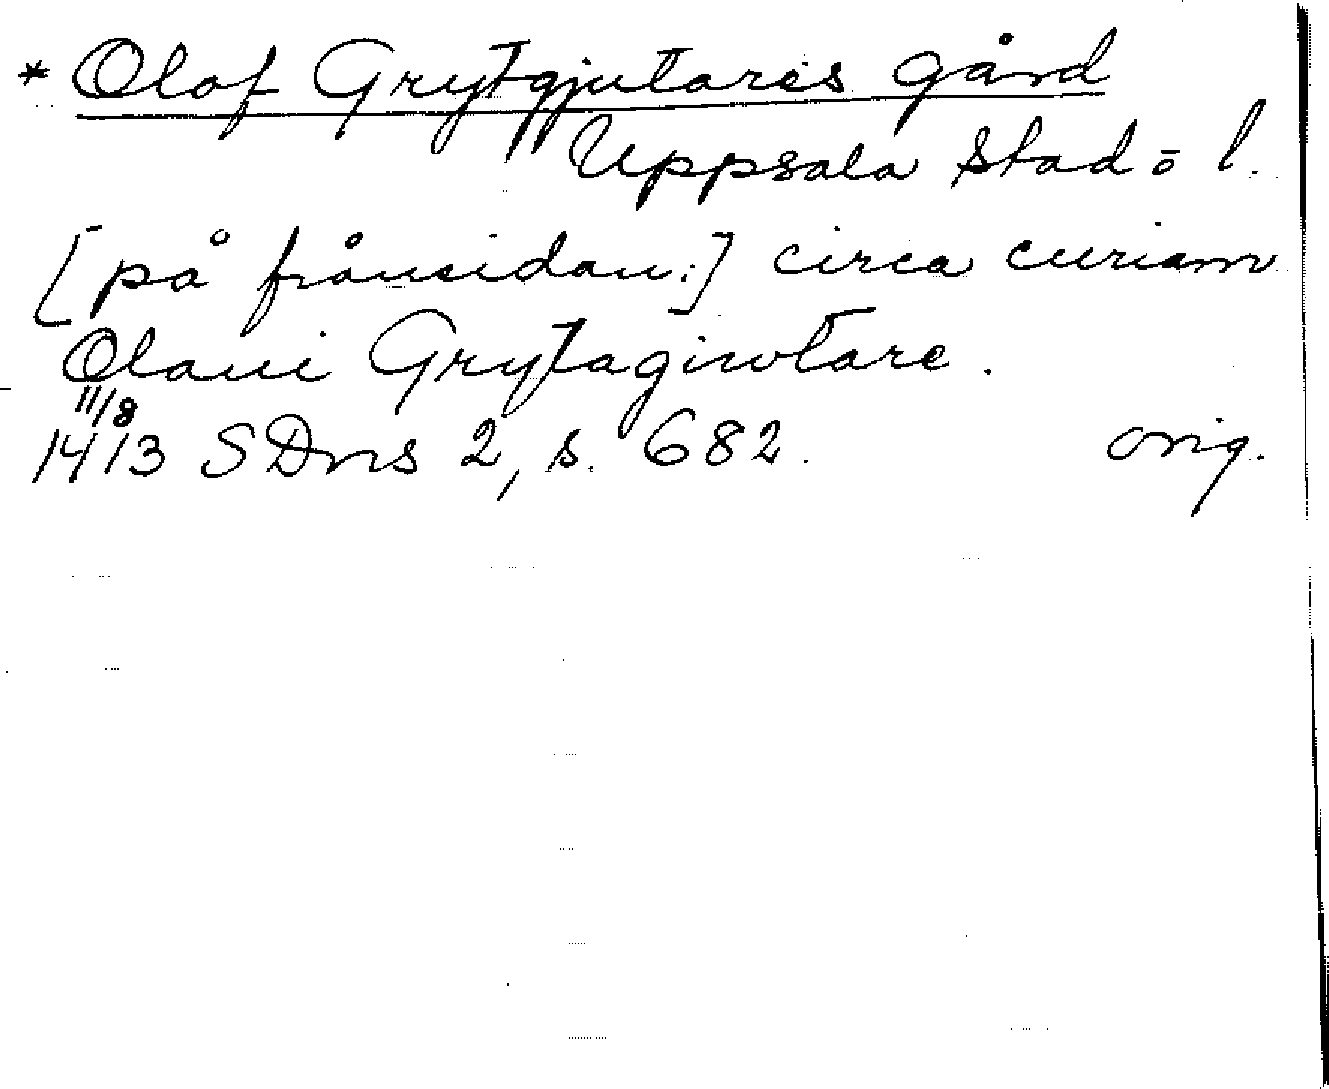 * Olof Grytgjutares gård
Uppsala stad o l.
[på frånsidan:] circa curiam
Olaui Grytagiwtare.
11/8
1413 SDns 2, s. 682. orig.